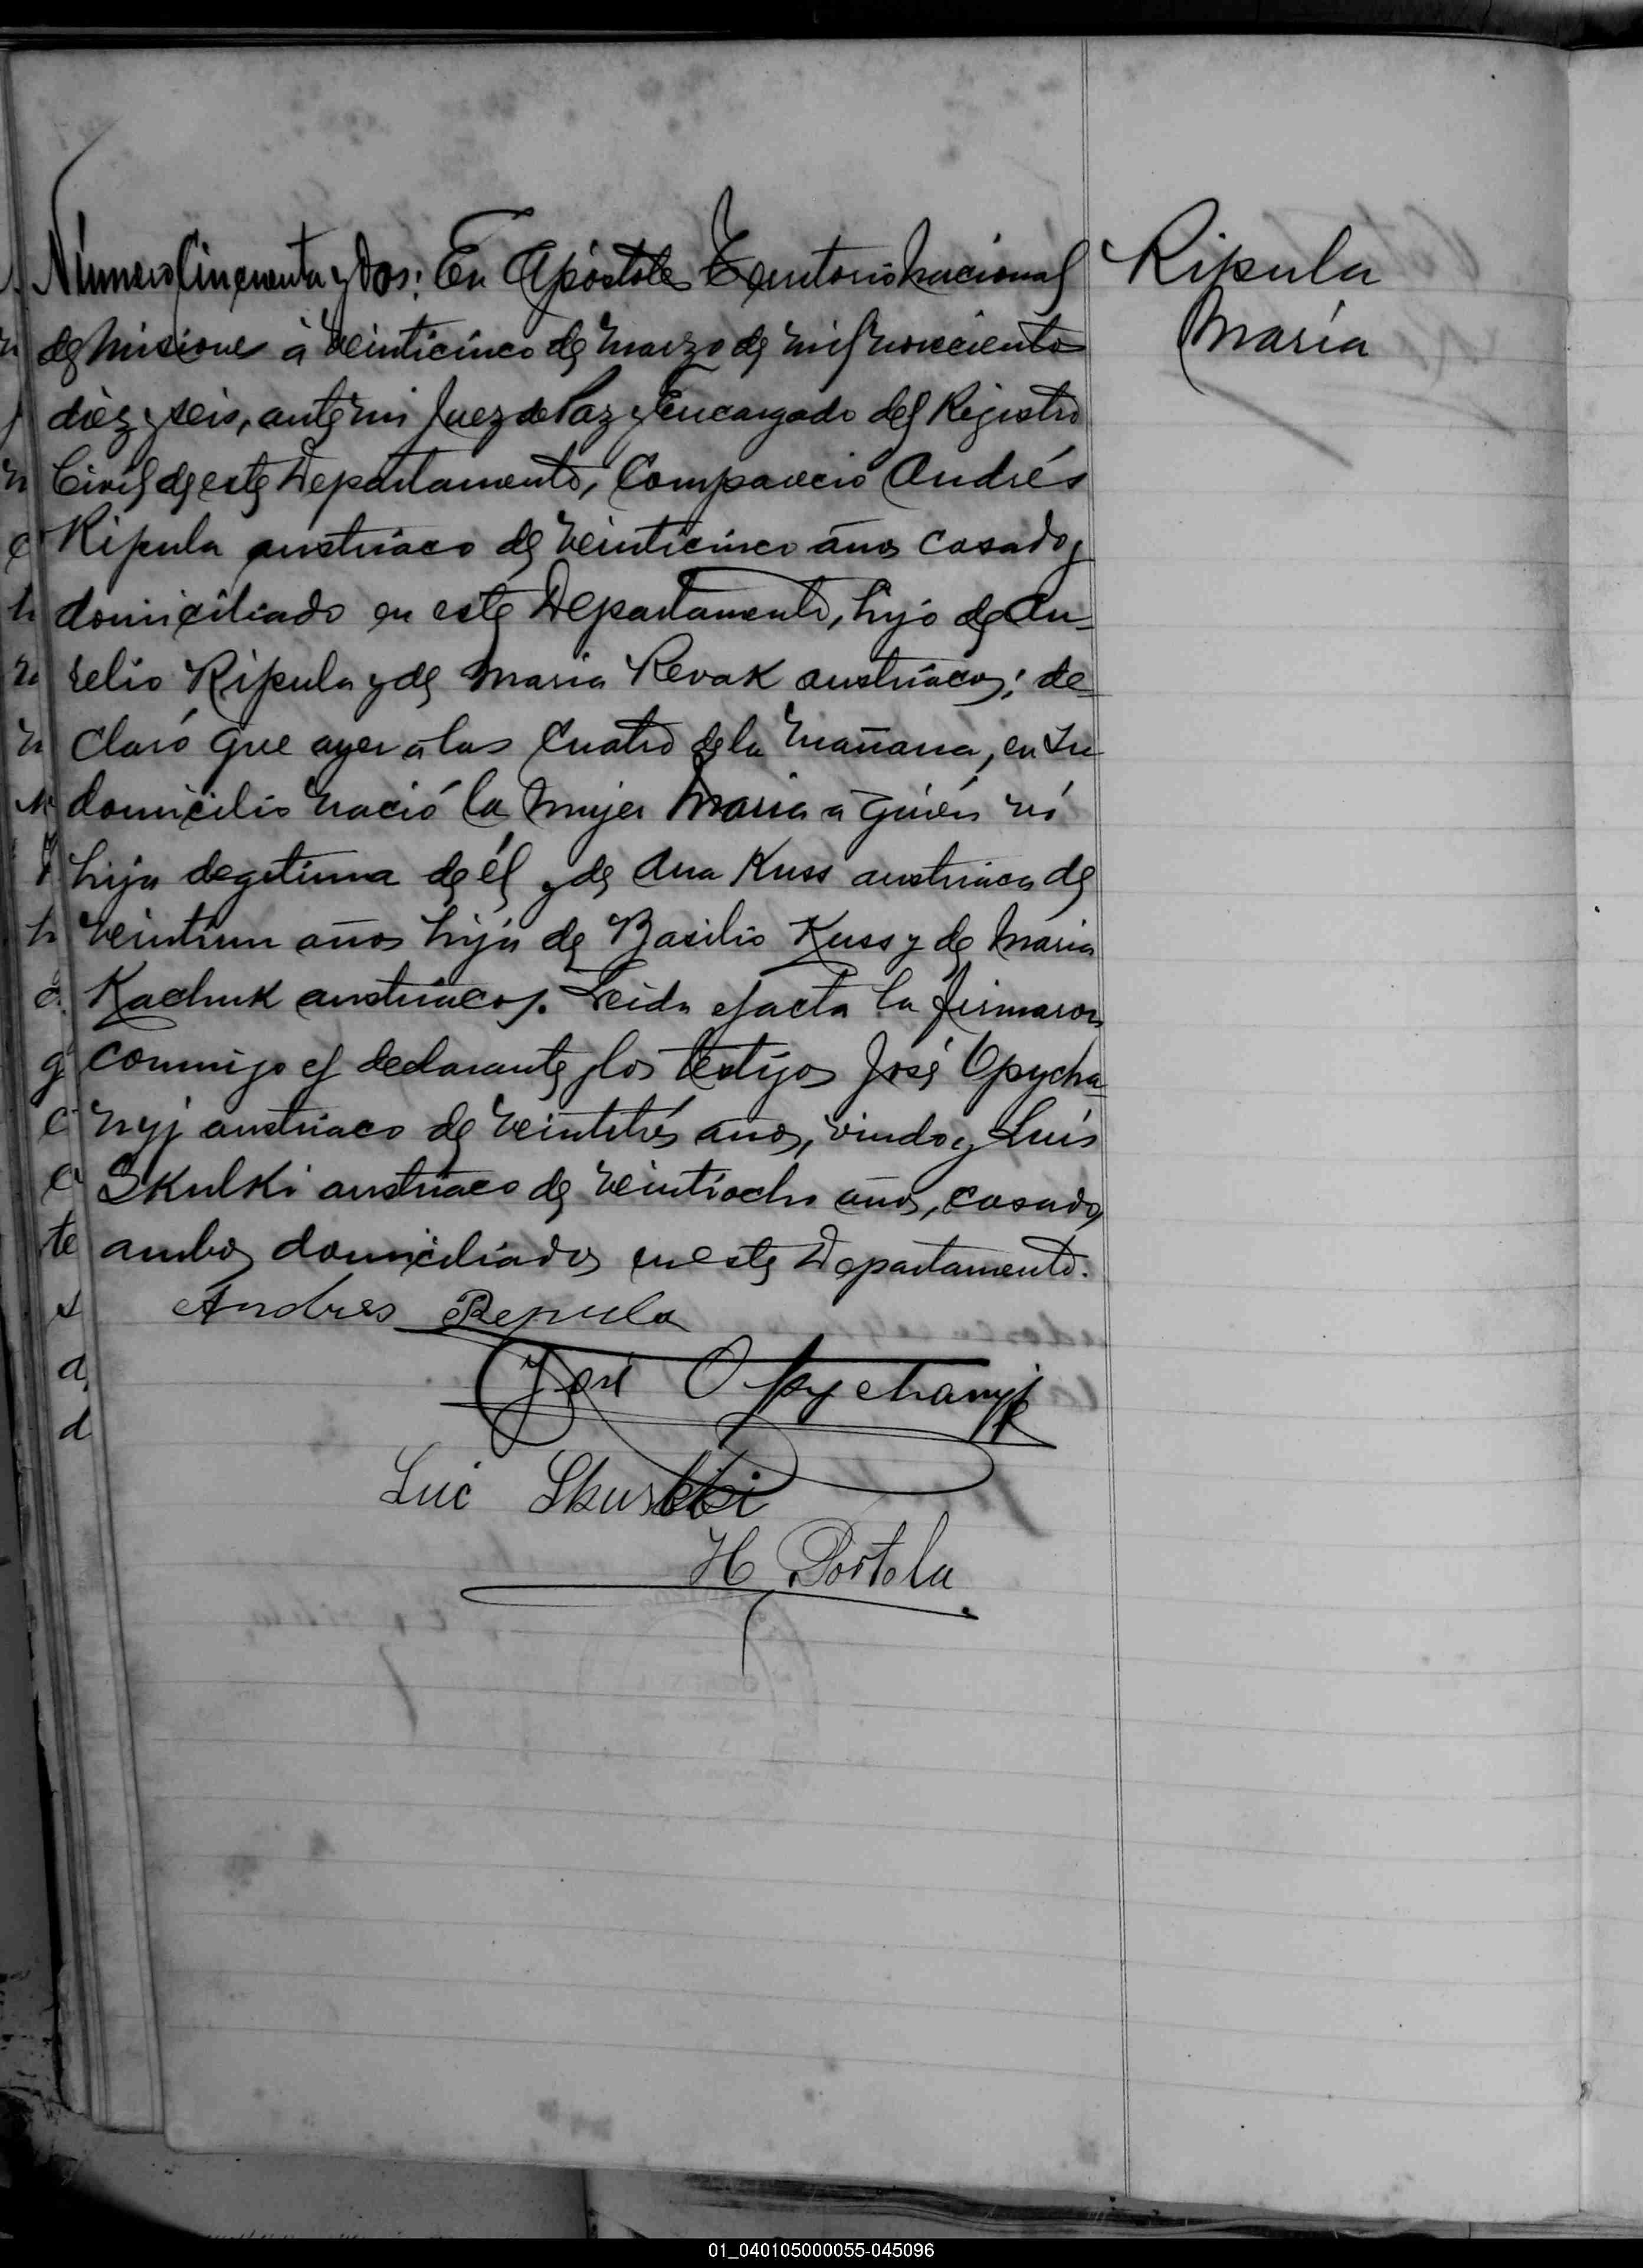 Número Cincuenta y Dos: En Apóstoles Territorio Nacional
de Misiones á veinticinco de Marzo de mil novecientos
diez y seis, ante mi Juez de Paz y Encargado del Registro
Civil de este Departamento, Compareció Andrés
Ripula austriaco de veinticinco años casado y
domiciliado en este Departamento, hijo de Au-
relio Ripula y de Maria Revak austriacos; de-
claró que ayer a las Cuatro de la Mañana, en su
domicilio nació la Mujer Maria a quién ví
hija legitima de él y de Ana Kuss austriaca de
veintiun años hija de Basilio Kuss y de Maria
Kachuk austriacos. Leida el acta la firmaron
conmigo el declarante y los testigos José Opycha-
nyj austriaco de veintitrés años, viudo y Luis
Skulki austriaco de veintiocho años, casado,
ambos domiciliados en este Departamento.
Andres Repula
José Opychanyj
Luic Skurkki
H Portela
Ripula
Maria
01_040105000055-045096